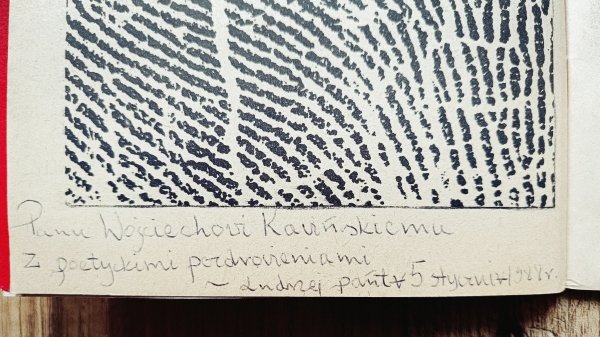 Panu Wojciechowi Kawińskiemu
z poetyckimi pozdrowieniami
~ Andrzej 5 stycznia 1988 r.